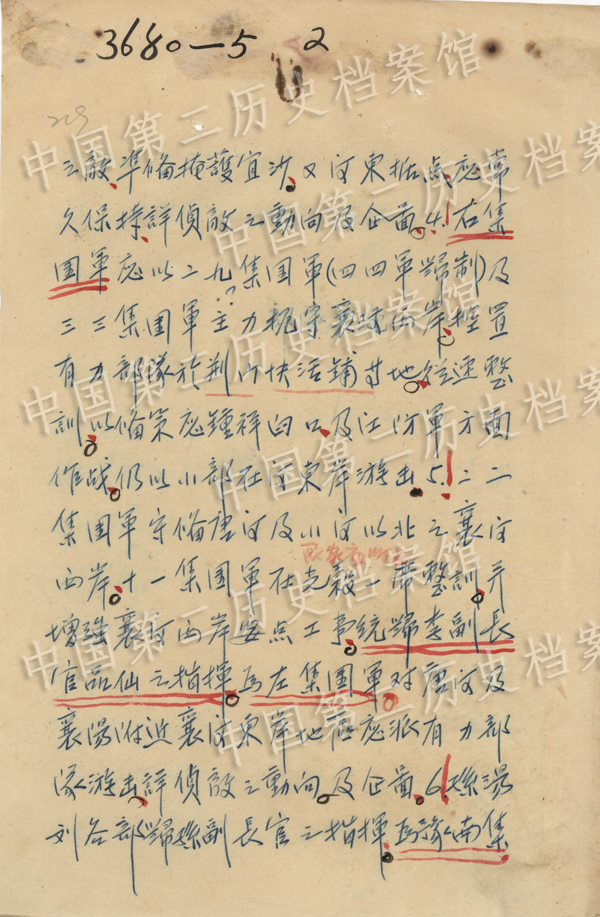 3680—5 2
之敵準備掩護宜沙又河東據点應常
久保持詳偵敵之動向及企畝4.右集
团軍應以二九集团軍(四四軍歸制)及
三三集团軍主力扼守襄河西岸控置
有力部隊於荆门快活鋪等地從速整
訓以備策應鍾祥臼口及江防軍方面
作战仍以小部在河東岸游击5.二二
集团軍守備唐河及小河以北之襄河
西岸十一集团軍在光穀一帶整訓并
增強襄河西岸要点工事統歸李副長
官品仙之指揮為左集团軍对唐河及
襄陽附近襄河東岸地區應派有力部
隊游击詳偵敵之動向及企畝6.孫湯
刘各部歸孫副長官之指揮為豫南集
中国第二历史档案馆